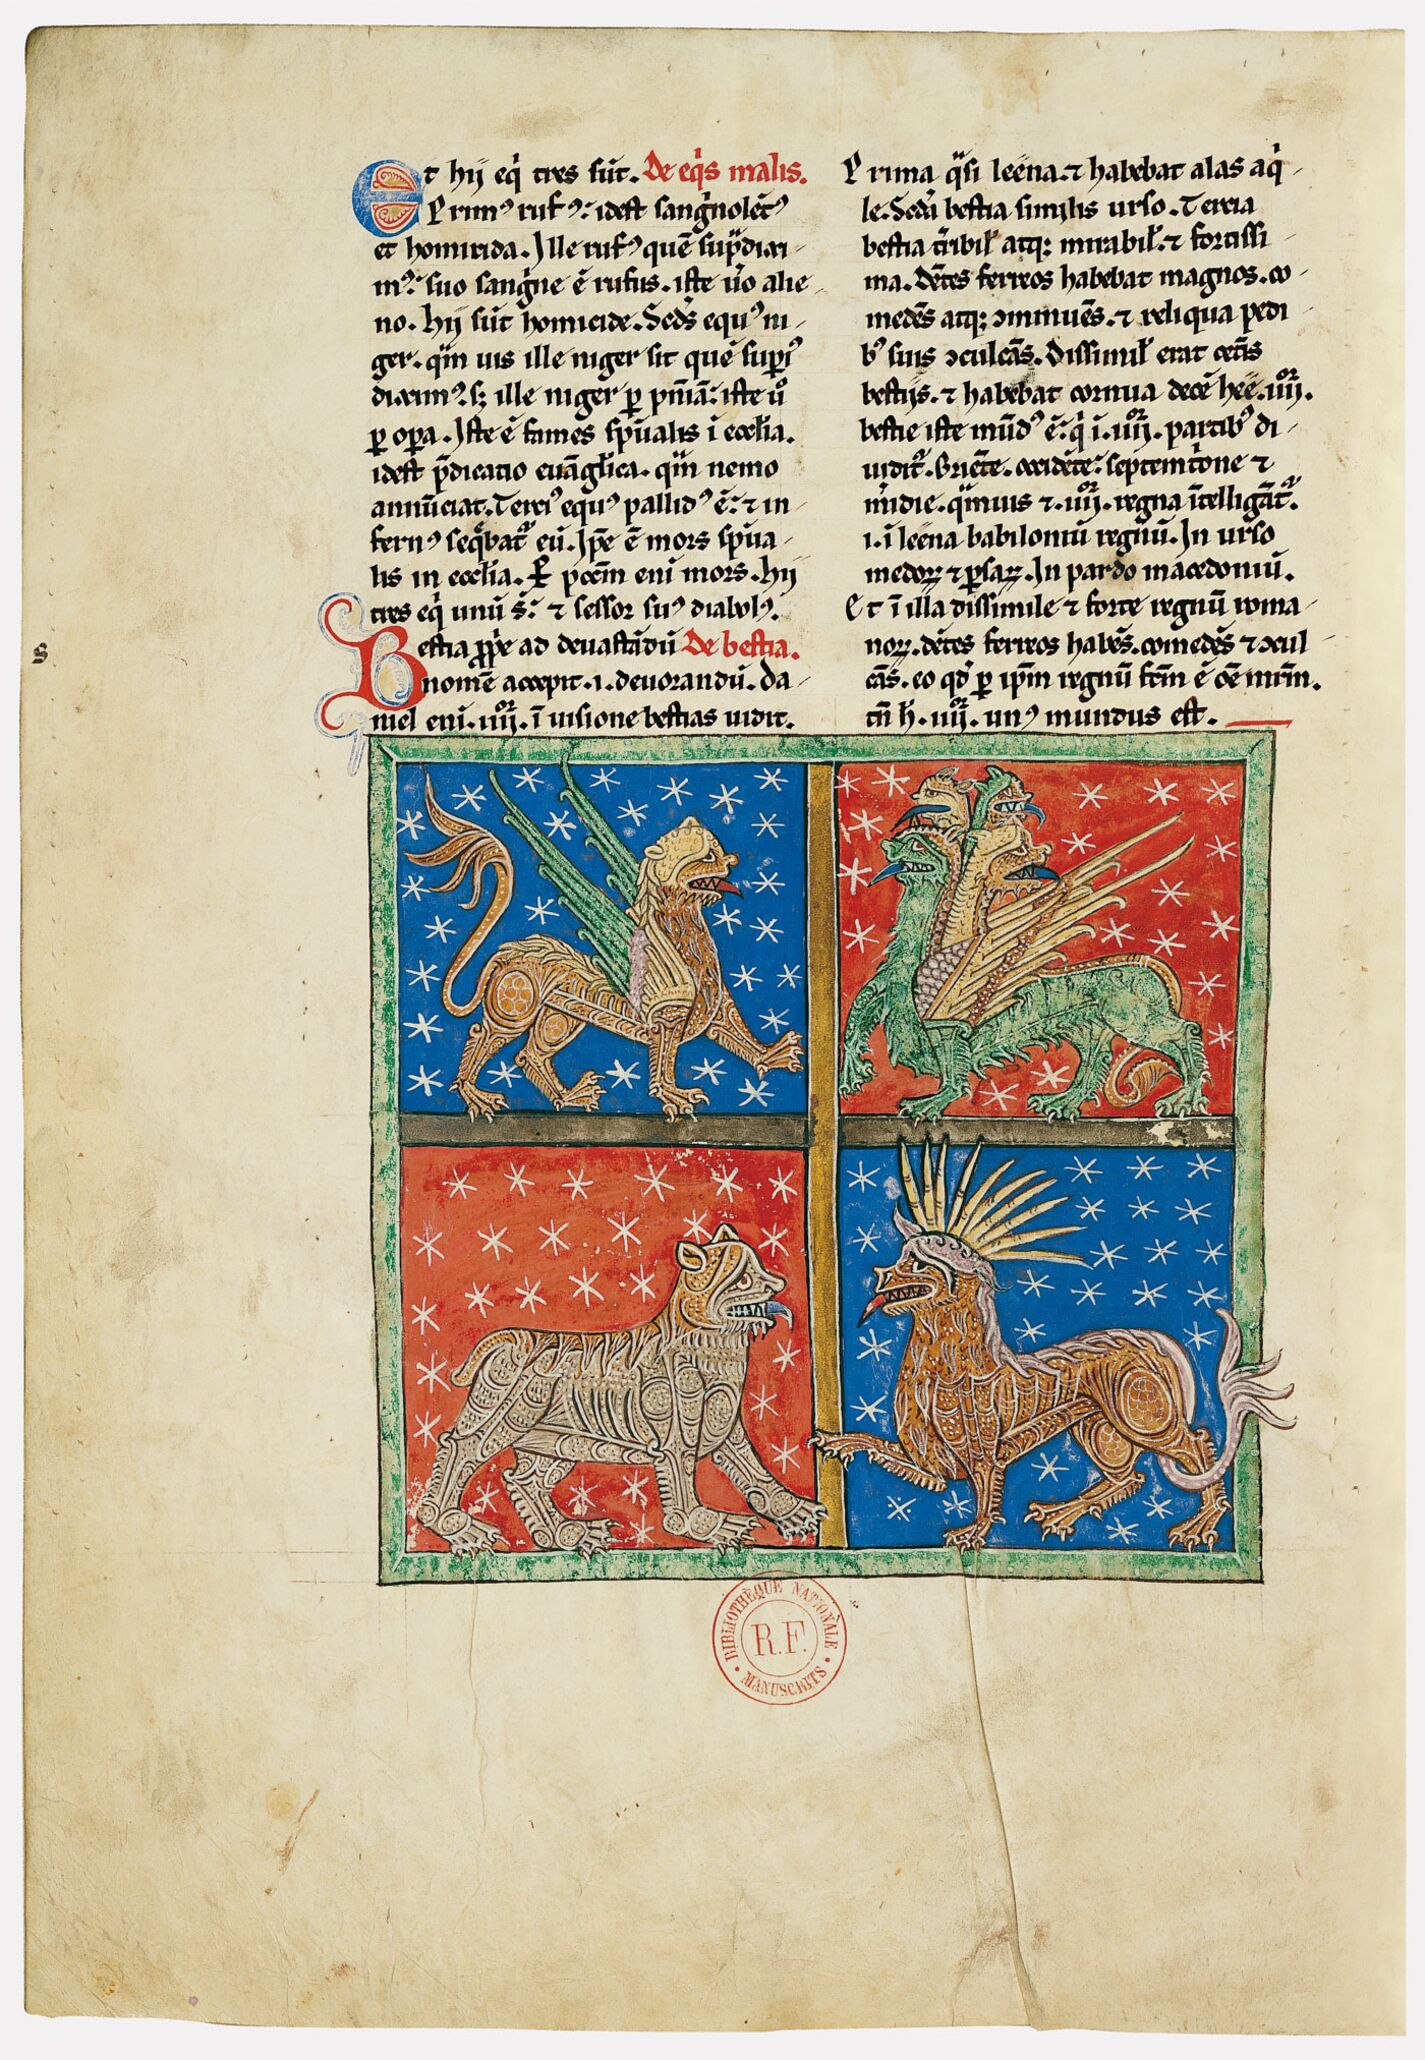 Et hij eq̉i tres sūt. De eq̉s malis.
Primꝰ rufꝰ: idest sang̉nolētꝰ
et homicida. Ille rufꝰ quē sup̄dixi-
mꝰ: suo sang̉ne ē rufus. iste ůo alie-
no. hij sūt homicide. Scds̄ equꝰ ni-
ger. q̄m uis ille niger sit quē supiꝰ
diximꝰ. s; ille niger ꝑ pn̄iā: iste ůo
ꝑ oꝑa. Iste ē fames sp̄ualis ī eccl̄ia.
idest p̄dicatio euāgl̄ica. q̄m nemo
annūciat. Terciꝰ equꝰ pallidꝰ ē: ⁊ in-
fernꝰ seq̄bat᷑ eū. Ip̄e ē mors sp̄ua-
lis in eccl̄ia. Per pcc̄m eni mors. hij
tres eq̉i unū s̄: ⁊ sessor suꝰ diabolꝰ.
Bestia ꝓp̄e ad deuastādū De bestia.
nomē accepit .i. deuorandū. Da-
niel eni .iiij. ī uisione bestias uidit.
Prima q̄si leēna. ⁊ habebat alas aq̉-
le. Scd̄a bestia similis urso. Tercia
bestia t̉ribil̄ atq; mirabil̄. ⁊ fortissi-
ma. Dētes ferreos habebat magnos. co-
medēs atq; ↄminuēs. ⁊ reliqua pedi-
bꝰ suis ↄculcās. Dissimil̄ erat cet̄is
bestijs. ⁊ habebat cornua decē. hee .iiij.
bestie iste mūdꝰ ē: q̉ ī .iiij. partibꝰ di-
uidit᷑. Oriēte. occidēte: septemt̉one ⁊
m̉idie. q̄muis ⁊ .iiij. regna ītelligāt᷑.
.i. ī leēna babiloniū regnū. In urso
medoꝝ ⁊ ꝑsaꝝ. In pardo macedoniū.
Et ī illa dissimile ⁊ forte regnū roma-
noꝝ. dētes ferreos habēs. comedēs ⁊ ↄcul-
cās. eo qd̄ ꝑ ip̄m regnū fcm̄ ē
tn̄ h̄ .iiij. unꝰ mundus est.
s
BIBLIOTHÈQUE NATIONALE
R.F.
MANUSCRITS